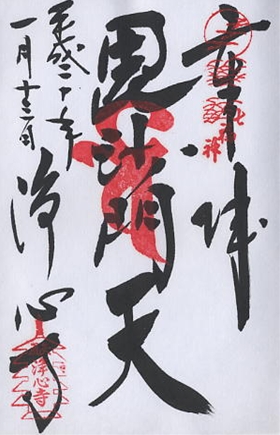 奉拝
毘沙門天
平成二十年
一月十三日
浄心寺
浄心寺